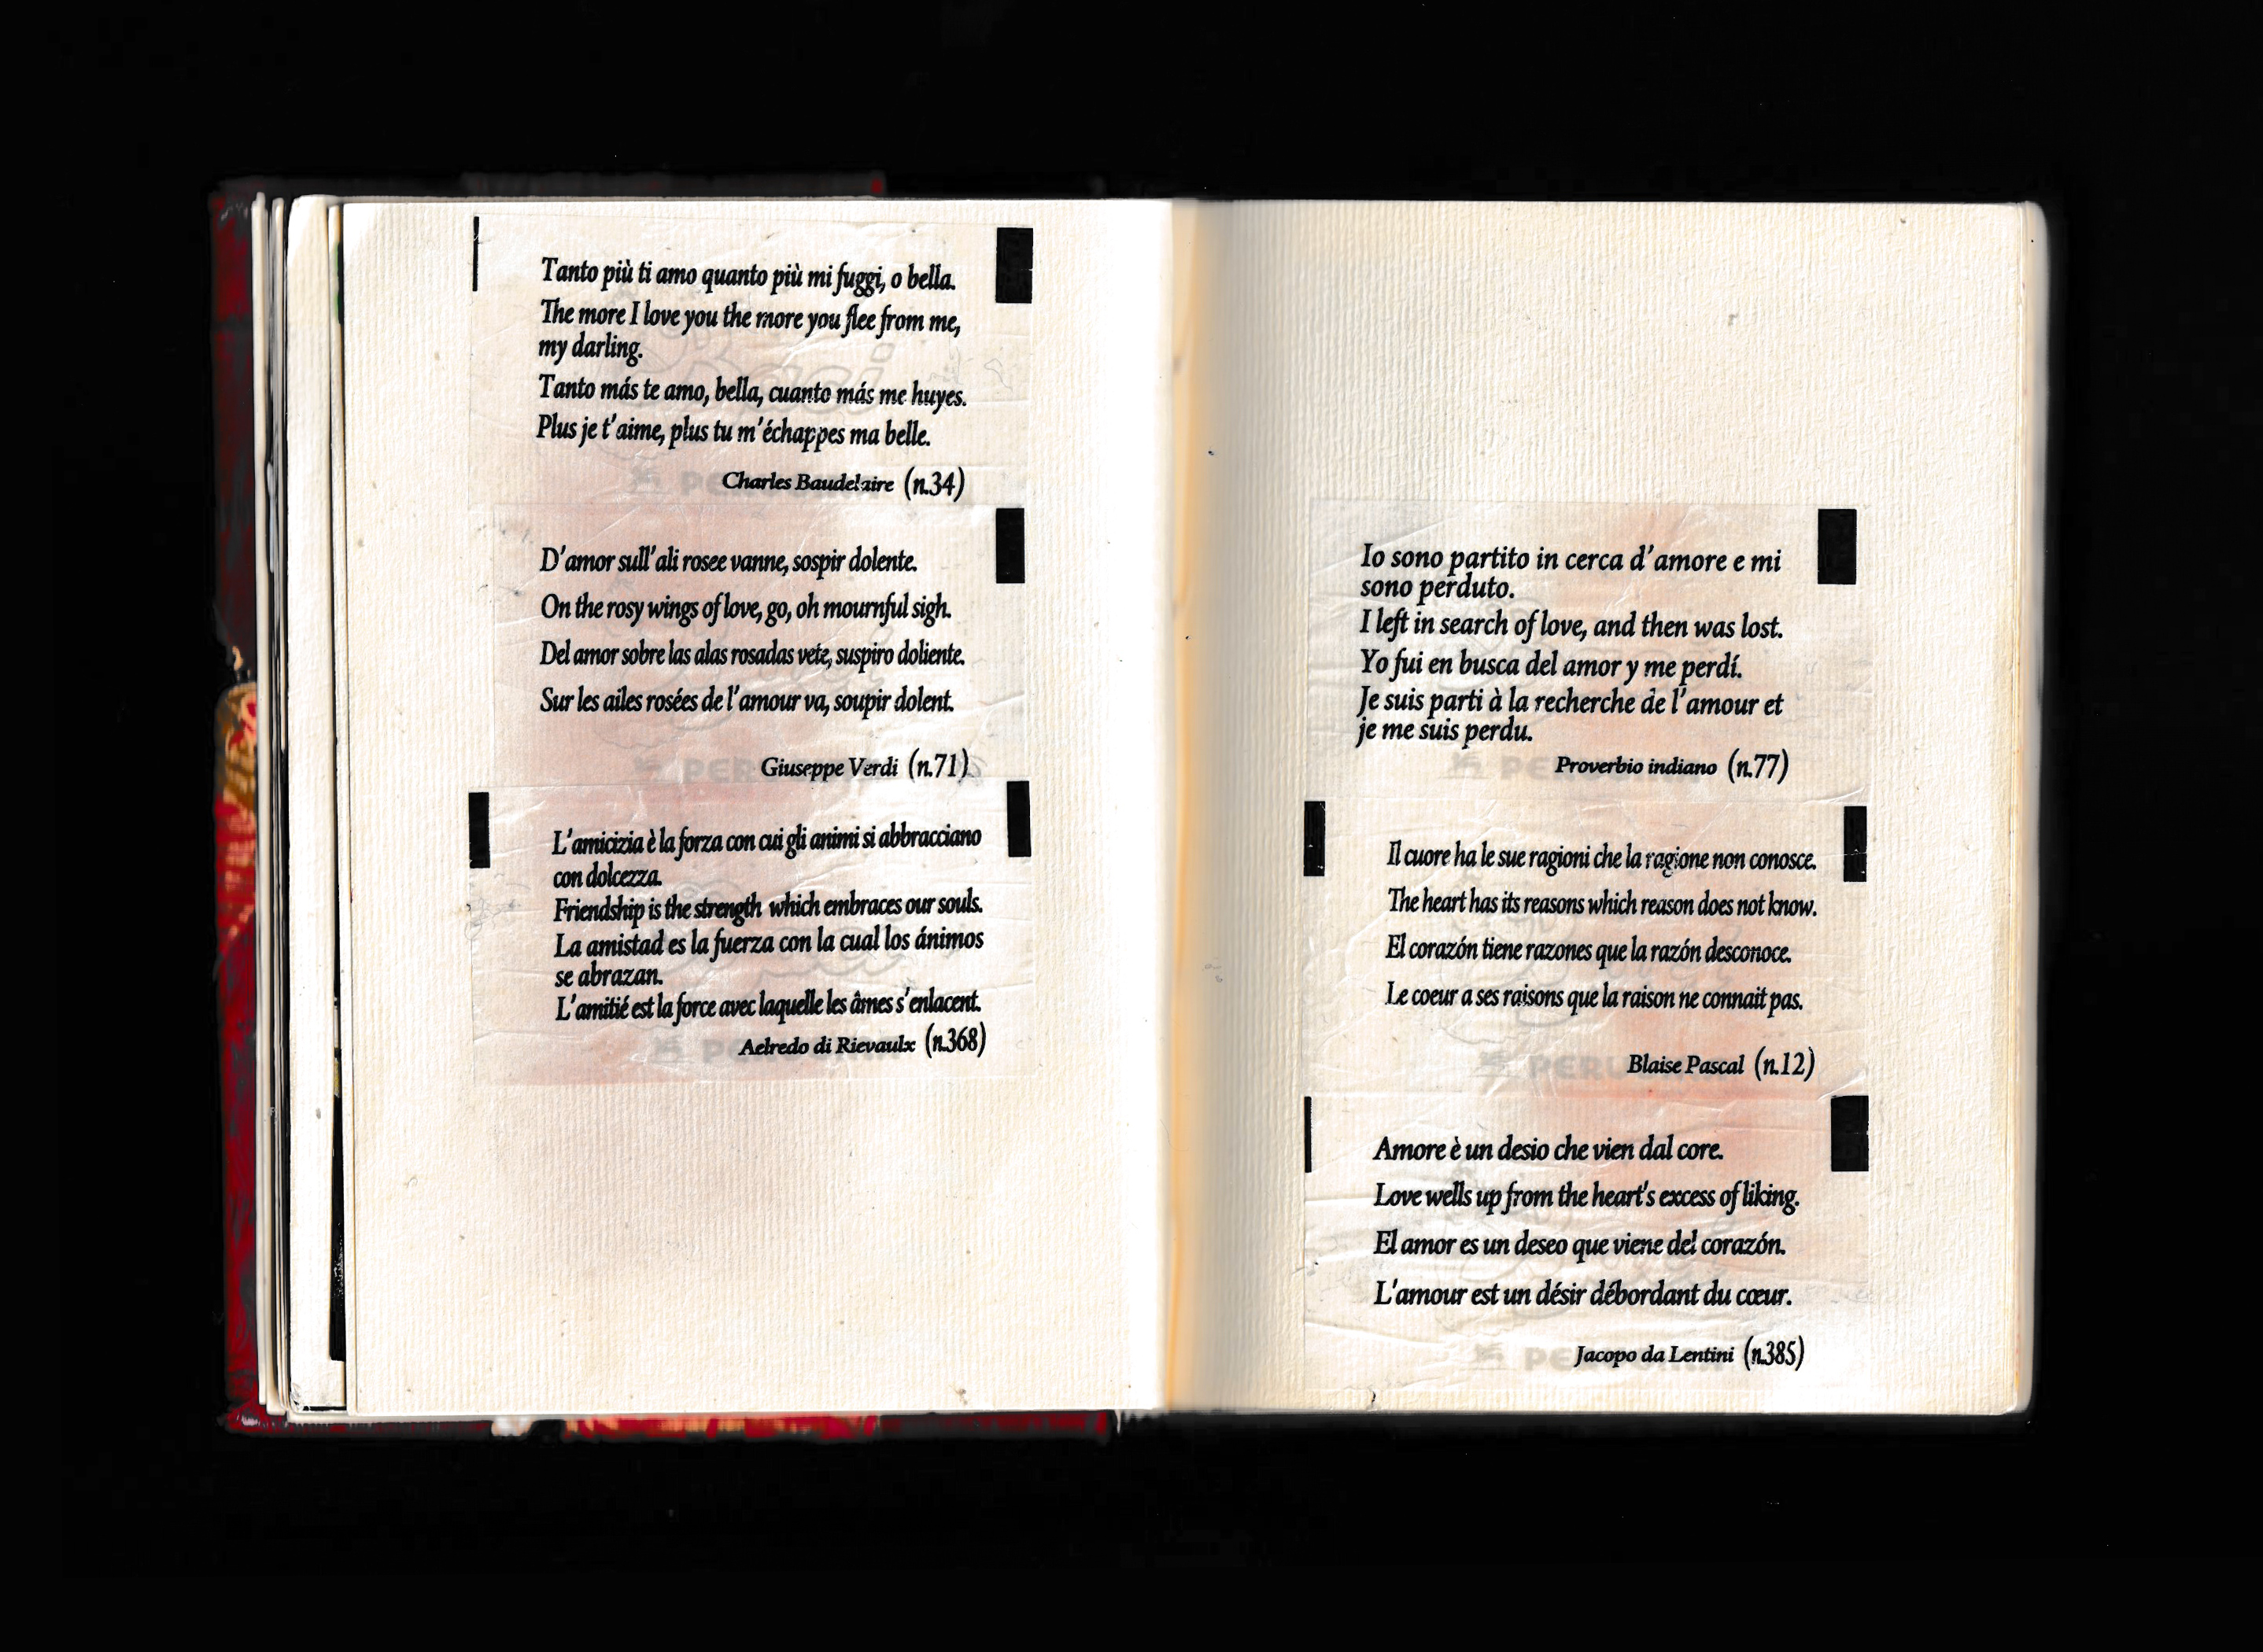 Tanto più ti amo quanto più mi fuggi, o bella.
The more I love you the more you flee from me,
my darling.
Tanto más te amo, bella, cuanto más me huyes.
Plus je t'aime, plus tu m'échappes ma belle.
Charles Baudelaire (n.34)
D'amor sull'ali rosee vanne, sospir dolente.
On the rosy wings of love, go, oh mournful sigh.
Del amor sobre las alas rosadas vete, suspiro doliente.
Sur les ailes rosées de l'amour va, soupir dolent.
Giuseppe Verdi (n.71)
L'amicizia è la forza con cui gli animi si abbracciano
con dolcezza.
Friendship is the strength which embraces our souls.
La amistad es la fuerza con la cual los ánimos
se abrazan.
L'amitié est la force avec laquelle les âmes s'enlacent.
Aelredo di Rievaulx (n.368)
Io sono partito in cerca d'amore e mi
sono perduto.
I left in search of love, and then was lost.
Yo fui en busca del amor y me perdí.
Je suis parti à la recherche de l'amour et
je me suis perdu.
Proverbio indiano (n.77)
Il cuore ha le sue ragioni che la ragione non conosce.
The heart has its reasons which reason does not know.
El corazón tiene razones que la razón desconoce.
Le coeur a ses raisons que la raison ne connait pas.
Blaise Pascal (n.12)
Amore è un desio che vien dal core.
Love wells up from the heart's excess of liking.
El amor es un deseo que viene del corazón.
L'amour est un désir débordant du cœur.
Jacopo da Lentini (n.385)